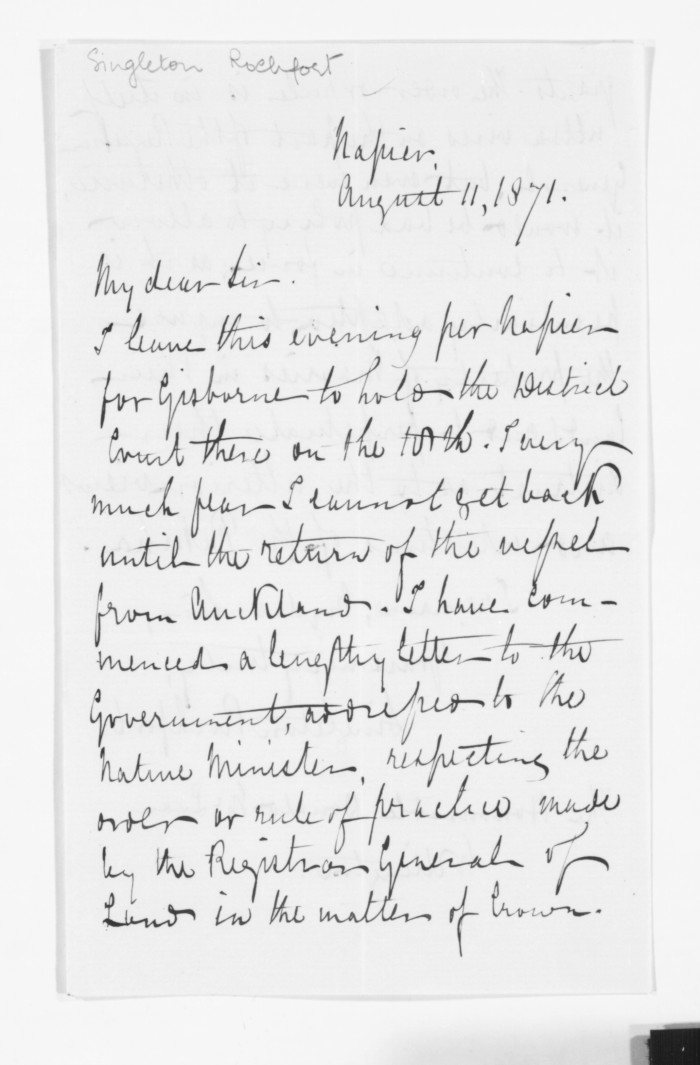 Singleton Rochfort
Napier.
August 11, 1871.
My dear Sir.
I leave this evening per Napier
for Gisborne to hold the District
Court there on the 18th. I very
much fear I cannot get back
until the return of the vessel
from Auckland. I have com-
menced a lengthy letter to the
Government, addressed to the
Native Minister, respecting the
order or rule of practice made
by the Registrar General of
Land in the matter of Crown.